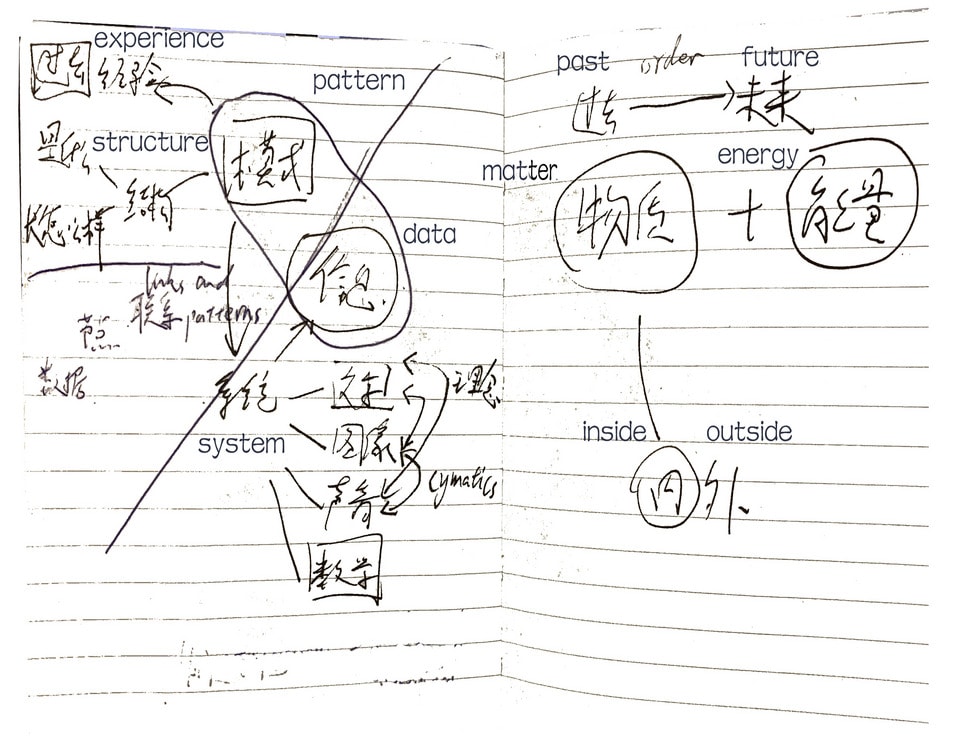 experience
过去 经验
pattern
模式
structure
结构
是什么
links and
联系 patterns
节点
数据
data
信息
系统
system
文字
图像
声音
数学
理念
cymatics
past order future
过去 未来
matter
物质
+
energy
能量
inside outside
内 外